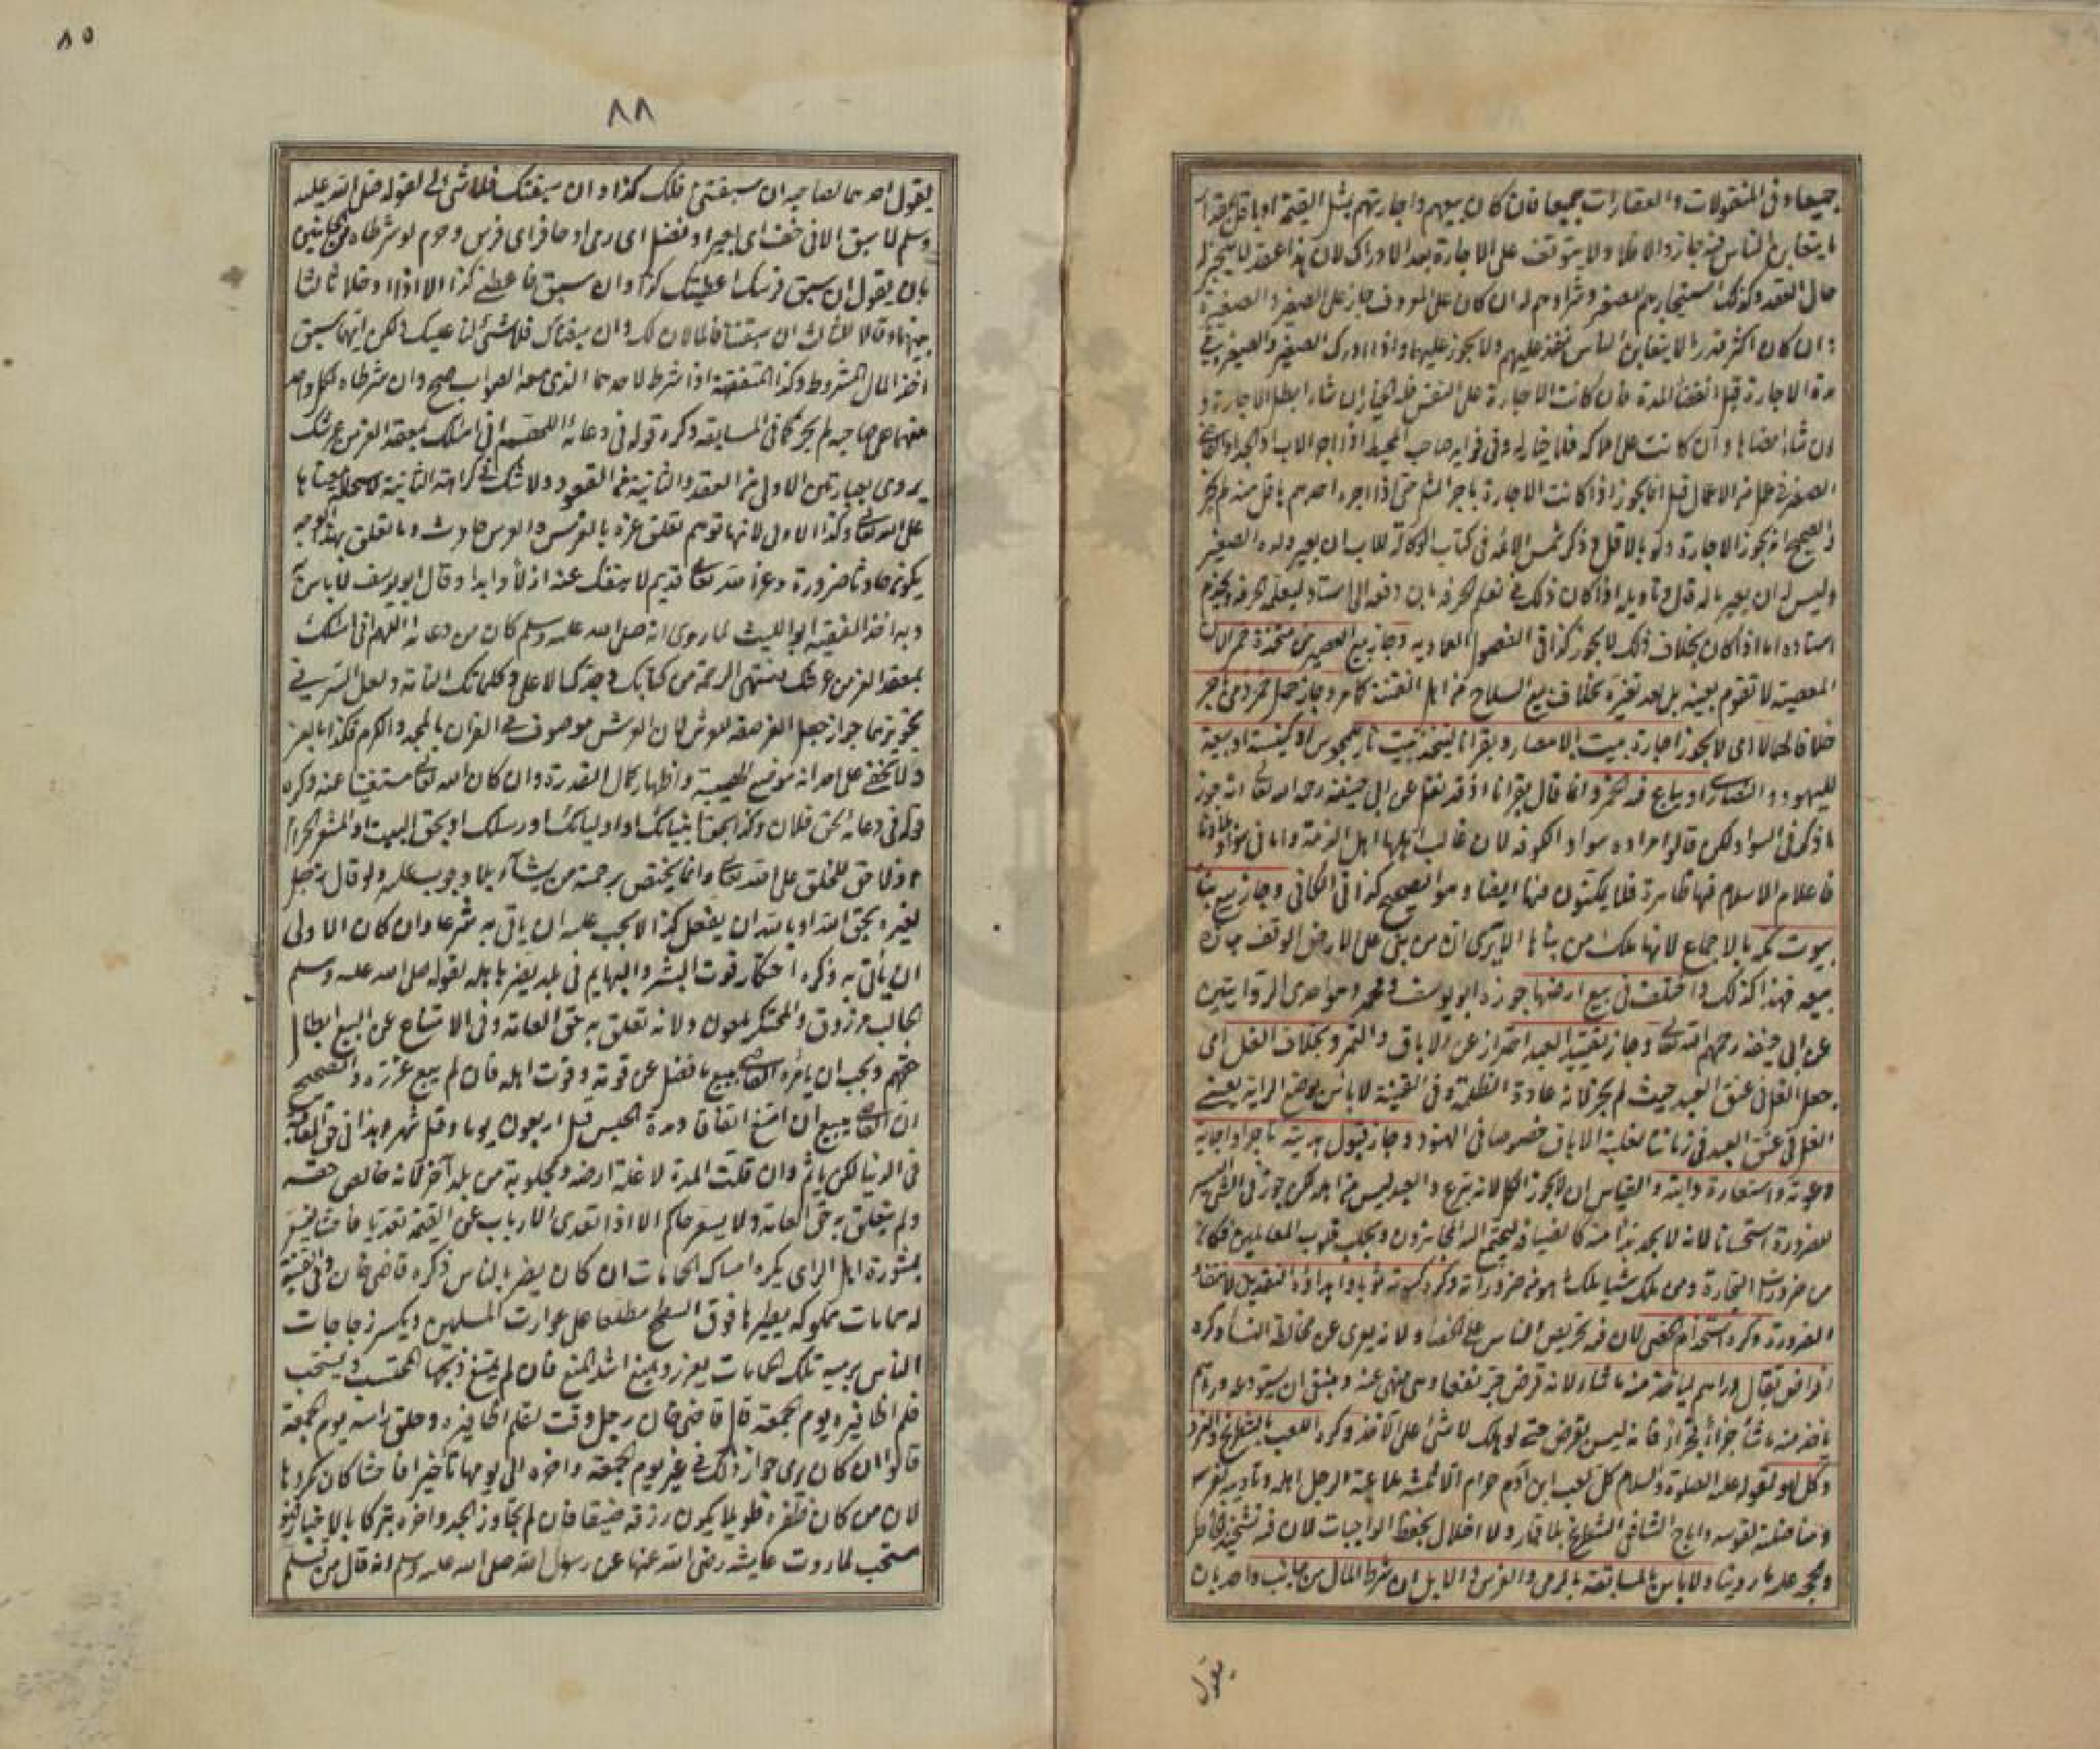 جميعا وفى المنقولات والعقارات جميعا فان كان بيعهم واجارتهم بمثل القيمة او باقل بمقدار
ما يتغابن الناس فيه جاز والا فلا ولا يتوقف على الاجازة بعد الادراك لان هذا عقد لا مجيز له
حال العقد وكذلك استيجارهم للصغير وشراوهم له ان كان على المعروف جاز على الصغير والصغيرة
وان كان اكثر قدر ما لا يتغابن الناس نفذ عليهم ولا يجوز عليهما واذا ادرك الصغير والصغيرة فى
مدة الاجارة قبل انقضاء المدة فان كانت الاجارة على النفس فله الخيار ان شاء ابطل الاجارة و
ان شاء امضاها وان كانت على املاكه فلا خيار له وفى فوايد صاحب المحيط اذا اجر الاب او الجد او القاضى
الصغير فى عمل من الاعمال قيل انما يجوز اذا كانت الاجارة باجر المثل حتى اذا اجره احدهم باقل منه لم يجز
والصحيح انه يجوز الاجارة ولو بالاقل وذكر شمس الائمة فى كتاب الوكالة للاب ان يعير ولده الصغير
وليس له ان يعير ماله قال وتاويله اذا كان ذلك فى تعلم الحرفة بان دفعه الى استاد ليعلمه الحرفة ويخدم
استاده اما اذا كان بخلاف ذلك لا يجوز كذا فى الفصول العمادية وجاز بيع العصير من متخذه خمر الان
المعصية لا تقوم بعينه بل بعد تغيره بخلاف بيع السلاح من اهل الفتنة كما مر وجاز حمل خمر ذمى باجر
خلافا لهما لا اى لا يجوز اجارة بيت بالامصار وبقرانا ليتخذ بيت نار للمجوس او كنيسة او بيعة
لليهود والنصارى او يباع فيه الخمر وانما قال بقرانا اذ قد نقل عن ابى حنيفة رحمه الله تعالى انه جوز
ما ذكر فى السواد لكن قالوا مراده سواد الكوفة لان غالب اهلها اهل الذمة واما فى سواد بلادنا
فاعلام الاسلام فيها ظاهرة فلا يمكنون فيها ايضا وهو الصحيح كذا فى الكافى وجاز بيع بناء
بيوت مكة بالاجماع لانها ملك من بناها الا يرى ان من بنى على الارض الوقف جاز
بيعه فهذا كذلك واختلف فى بيع ارضها جوزه ابو يوسف ومحمد وهو احدى الروايتين
عن ابى حنيفة رحمهم الله تعالى وجاز تقييد العبد احترازا عن الاباق والتمرد بخلاف الغل اى
جعل الغل فى عنق العبد حيث لم يجز لانه عادة الظلمة وفى القنية لا باس بوضع الراية يعنى
الغل فى عنق العبد فى زماننا لغلبة الاباق خصوصا فى الهنود وجاز قبول هديته تاجرا واجابة
دعوته واستعارة دابته والقياس ان لا يجوز الكل لانه تبرع والعبد ليس من اهله لكن جوز فى الشئ اليسير
للضرورة استحسانا لانه لا يجد بدا منه كالضيافة ليجتمع اليه المجاهزون ويجلب قلوب المعاملين فكان
من ضرورات التجارة ومن ملك شيا يملك ما هو من ضروراته وكره كسوته ثوبا واهداؤه النقدين لانتفاء
الضرورة وكره استخدام الخصى لان فيه تحريض الناس على الخصاء ولانه لا يعرى عن مخالطة النساء وكره
اقراض بقال دراهم لياخذ منه ما شاء لانه قرض جر نفعا وهى منهى عنه وينبغى ان يستودعه دراهم
ياخذ منه ما شاء جزأ فجزأ اذ فانه ليس بقرض حتى لو هلك لا شئ على الآخذ وكره اللعب بالشطرنج والنرد
وكل لهو لقوله عليه الصلوة والسلام كل لعب ابن آدم حرام الا ثلثة ملاعبة الرجل اهله وتاديبه لفرسه
ومناضلته لقوسه واباح الشافعى الشطرنج بلا قمار ولا اخلال بحفظ الواجبات لان فيه تشحيذ الخاطر
والحجة عليه ما روينا ولا باس بالمسابقة بالرمى والفرس والابل ان شرط المال من جانب واحد بان
يقول
٨٥
٨٨
يقول احدهما لصاحبه ان سبقتنى فلك كذا وان سبقتك فلا شئ لى لقوله صلى الله عليه
وسلم لا سبق الا فى خف اى بعير او نصل اى رمى او حافر اى فرس وحرم لو شرطاه من الجانبين
بان يقول ان سبق فرسك اعطيتك كذا وان سبق فاعطنى كذا الا اذا ادخلا ثالثا
بينهما وقالا للثالث ان سبقتنا فالمالان لك وان سبقناك فلا شئ لنا عليك ولكن ايهما سبق
اخذ المال المشروط وكذا المتفقهة اذا شرط لاحدهما الذى معه الصواب صح وان شرطاه لكل واحد
منهما على صاحبه لم يجز كما فى المسابقة وكره قوله فى دعائه اللهم انى اسالك بمعقد العز من عرشك
يروى بعبارتين الاول من العقد والثانية من القعود ولا شك فى كراهة الثانية لاستحالة معناها
على الله تعالى وكذا الاولى لانها توهم تعلق عزه بالعرش والعرش حادث وما تعلق بهذا الوجه
يكون حادثا ضرورة وعز الله تعالى قديم لا ينفك عنه ازلا وابدا وقال ابو يوسف لا باس به
وبه اخذ الفقيه ابو الليث لما روى انه صلى الله عليه وسلم كان من دعائه اللهم انى اسالك
بمعقد العز من عرشك ومنتهى الرحمة من كتابك وجدك الاعلى وكلماتك التامة ولعل السر فى
تجويزهما جواز جعل العز صفة للعرش لان العرش موصوف فى القرآن بالمجد والكرم فكذا بالعز
ولا يخفى على احد انه موضع الهيبة واظهار كمال القدرة وان كان الله تعالى مستغنيا عنه وكره
قوله فى دعائه بحق فلان وكذا بحق انبيائك او اوليائك او رسلك او بحق البيت او المشعر الحرام
اذ لا حق للخلق على الله تعالى وانما يختص برحمته من يشاء بلا وجوب عليه ولو قال رجل
لغيره بحق الله او بالله ان يفعل كذا لا يجب عليه ان ياتى به شرعا وان كان الاولى
ان ياتى به وكره احتكار قوت البشر والبهايم فى بلد يضر باهله لقوله صلى الله عليه وسلم
الجالب مرزوق والمحتكر ملعون ولانه تعلق به حق العامة وفى الامتناع عن البيع ابطال
حقهم ويجب ان يأمره القاضى ببيع ما فضل عن قوته وقوت اهله فان لم يبع عزره والصحيح
ان القاضى يبيع ان امتنع اتفاقا ومدة الحبس قيل اربعون يوما وقيل شهر وهذا فى حق المعاقبة
فى الدنيا لكن ياثم وان قلت المدة لا غلة ارضه ومجلوبة من بلد آخر لانه خالص حقه
ولم يتعلق به حق العامة ولا يسعر حاكم الا اذا تعدى الارباب عن القيمة تعديا فاحشا فيسعر
بمشورة اهل الراى يكره امساك الحمامات ان كان يضر بالناس ذكره قاضى خان وفى القنية
له حمامات مملوكة يطيرها فوق السطح مطلعا على عورات المسلمين ويكسر زجاجات
الناس برميه تلك الحمامات يعزر ويمنع اشد المنع فان لم يمتنع ذبحها المحتسب ويستحب
قلم اظافيره يوم الجمعة قال قاضى خان رجل وقت لقلم اظافيره وحلق راسه يوم الجمعة
قالوا ان كان يرى جواز ذلك فى غير يوم الجمعة واخره الى يومها تاخيرا فاحشا كان مكروها
لان من كان ظفره طويلا يكون رزقه ضيقا فان لم يجاوز الحد واخره تبركا بالاخبار فهو
مستحب لما روت عايشة رضى الله عنها عن رسول الله صلى الله عليه وسلم انه قال من قلم